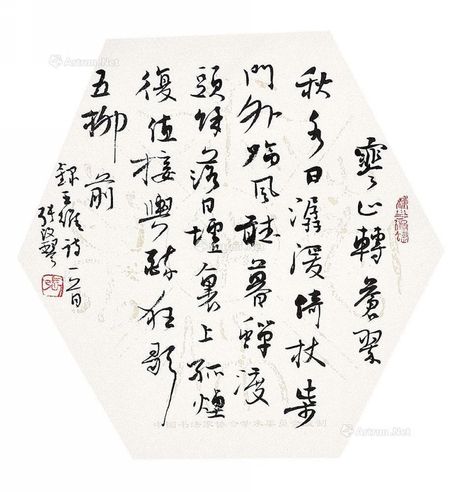 寒山轉蒼翠
秋水日潺湲倚杖柴
門外臨風聽暮蟬渡
頭餘落日墟裏上孤煙
復值接輿醉狂歌
五柳前
錄王維詩一首
張改琴
Artron.Net
Artron.Net